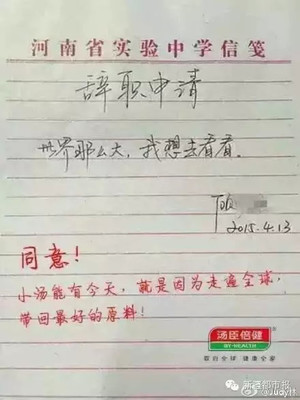 河南省实验中学信笺
辞职申请
世界那么大，我想去看看。
顾
2015.4.13
同意！
小汤能有今天，就是因为走遍全球，
带回最好的原料！
汤臣倍健
BY-HEALTH
取自全球 健康全家
新晋都市报
@Judylt